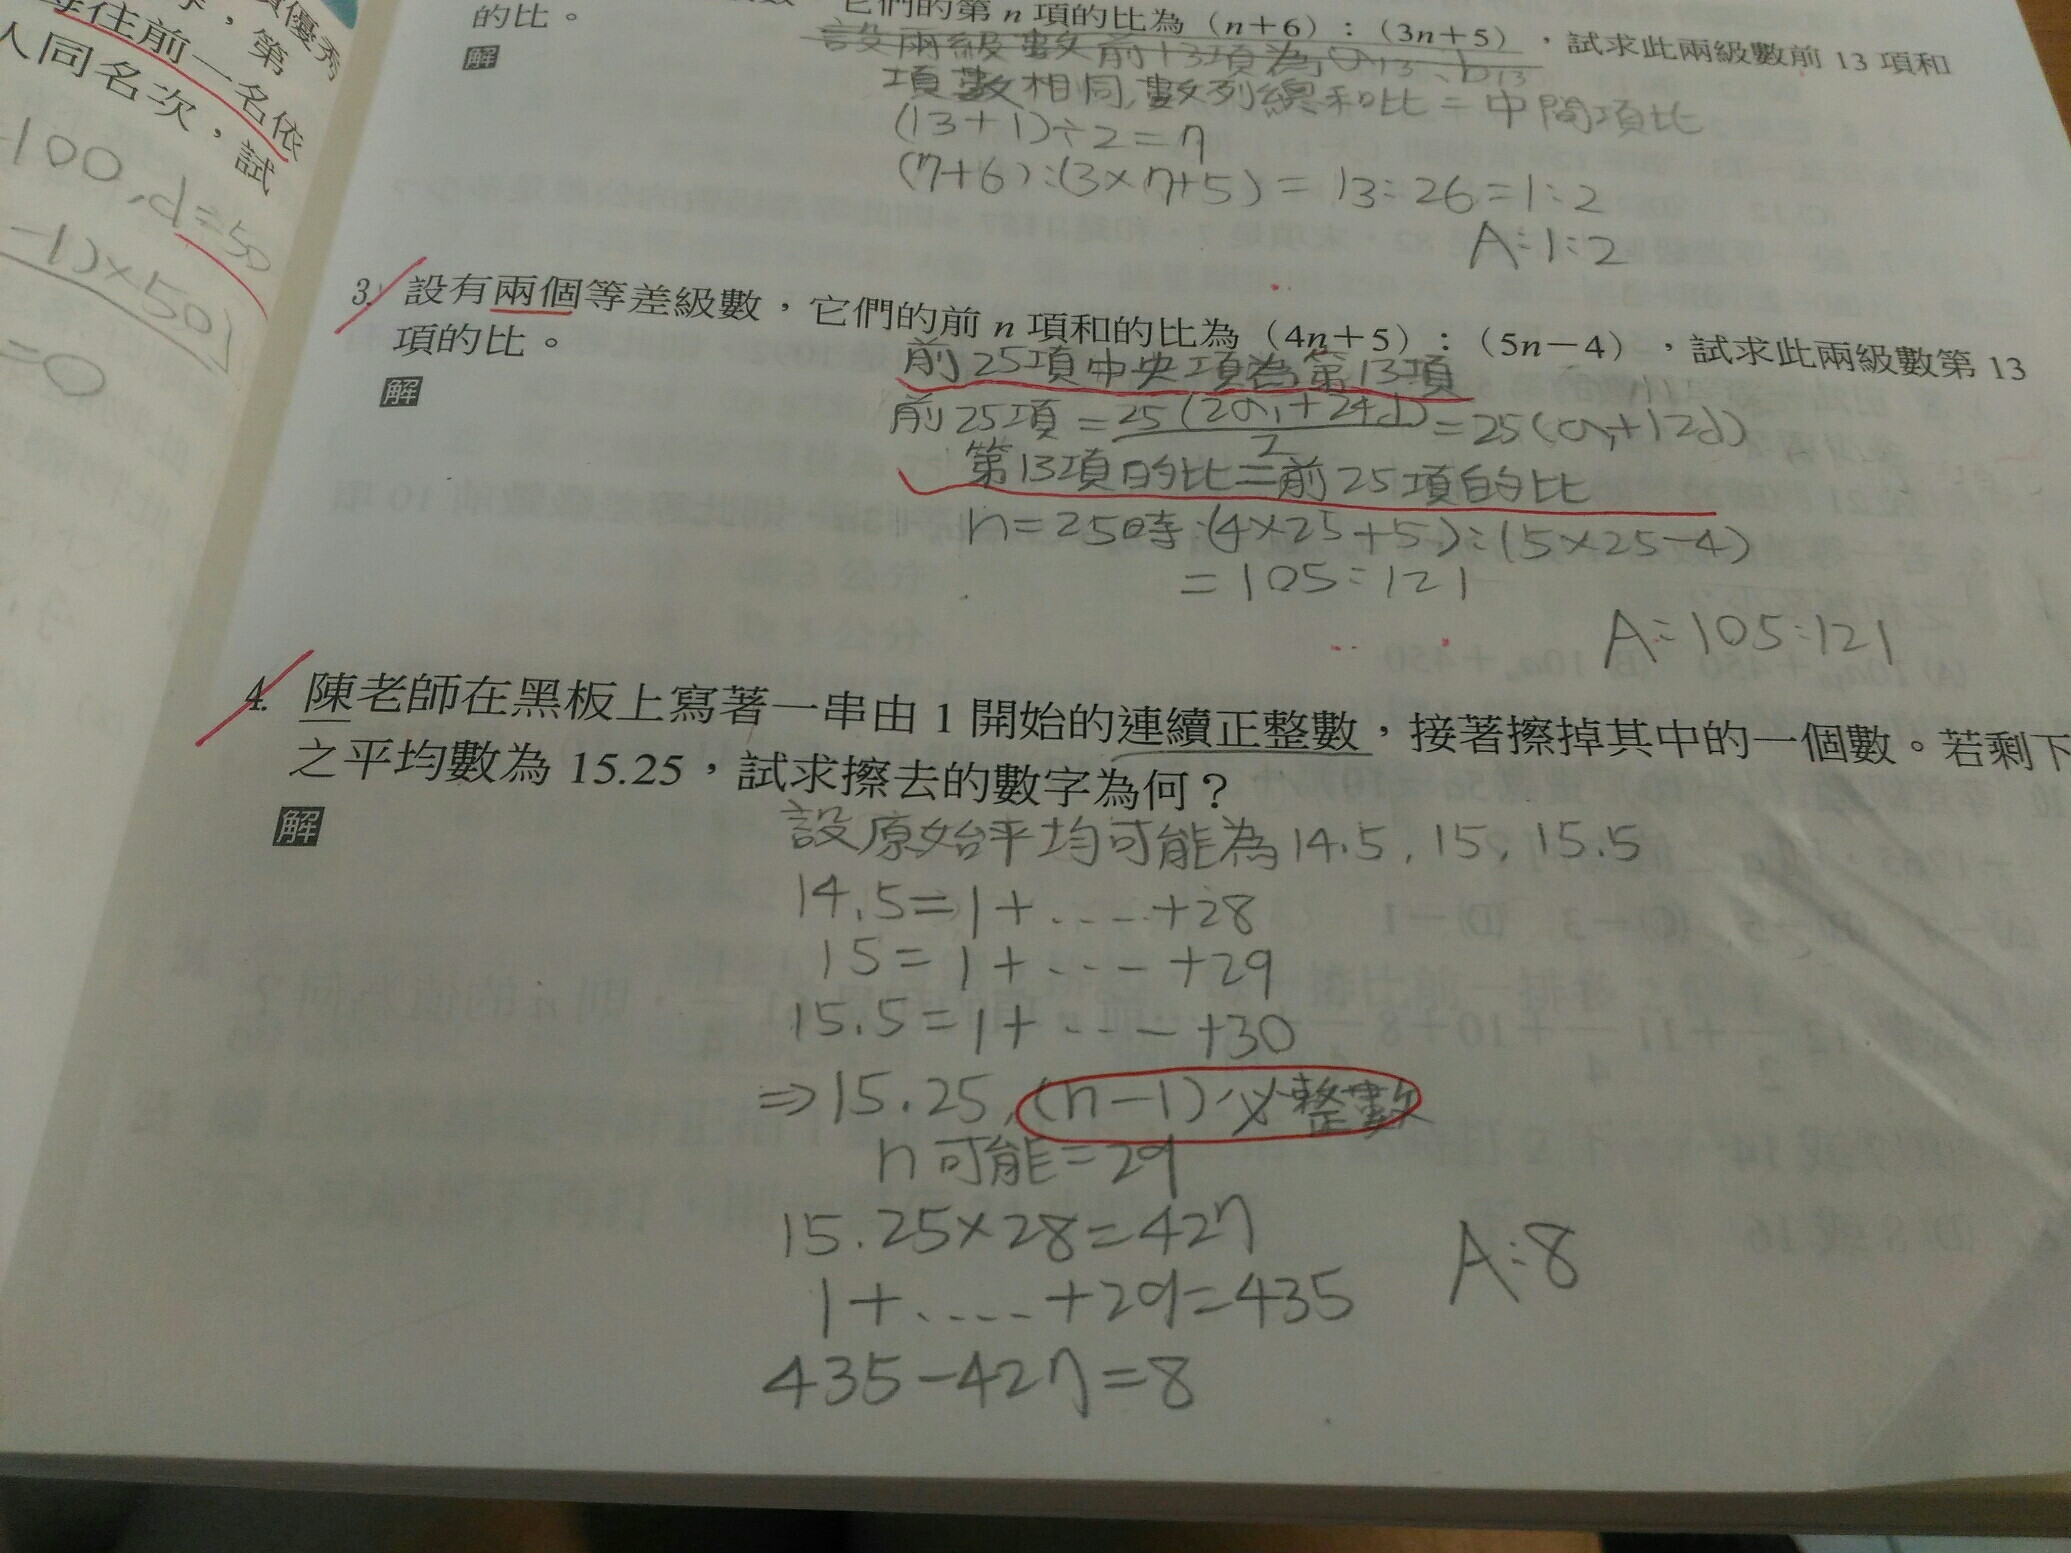 優秀
，第
每往前一名依
人同名次，試
100, d=50
-1)×50)
=0
它們的第 n 項的比為（n+6）：（3n+5），試求此兩級數前 13 項和
的比。
解
設兩級數前13項為a13、b13
項數相同,數列總和比=中間項比
(13+1)÷2=7
(7+6):(3×7+5)=13:26=1:2
A:1:2
3. 設有兩個等差級數，它們的前 n 項和的比為（4n+5）：（5n−4），試求此兩級數第 13
項的比。
解
前25項中央項為第13項
前25項=25(2a1+24d)/2=25(a1+12d)
第13項的比=前25項的比
n=25時:(4×25+5):(5×25-4)
=105:121
A:105:121
4. 陳老師在黑板上寫著一串由 1 開始的連續正整數，接著擦掉其中的一個數。若剩下
之平均數為 15.25，試求擦去的數字為何？
解
設原始平均可能為14.5, 15, 15.5
14.5=1+.....+28
15=1+....+29
15.5=1+....+30
⇒15.25,(n-1)必整數
n可能=29
15.25×28=427
1+.....+29=435
435-427=8
A:8